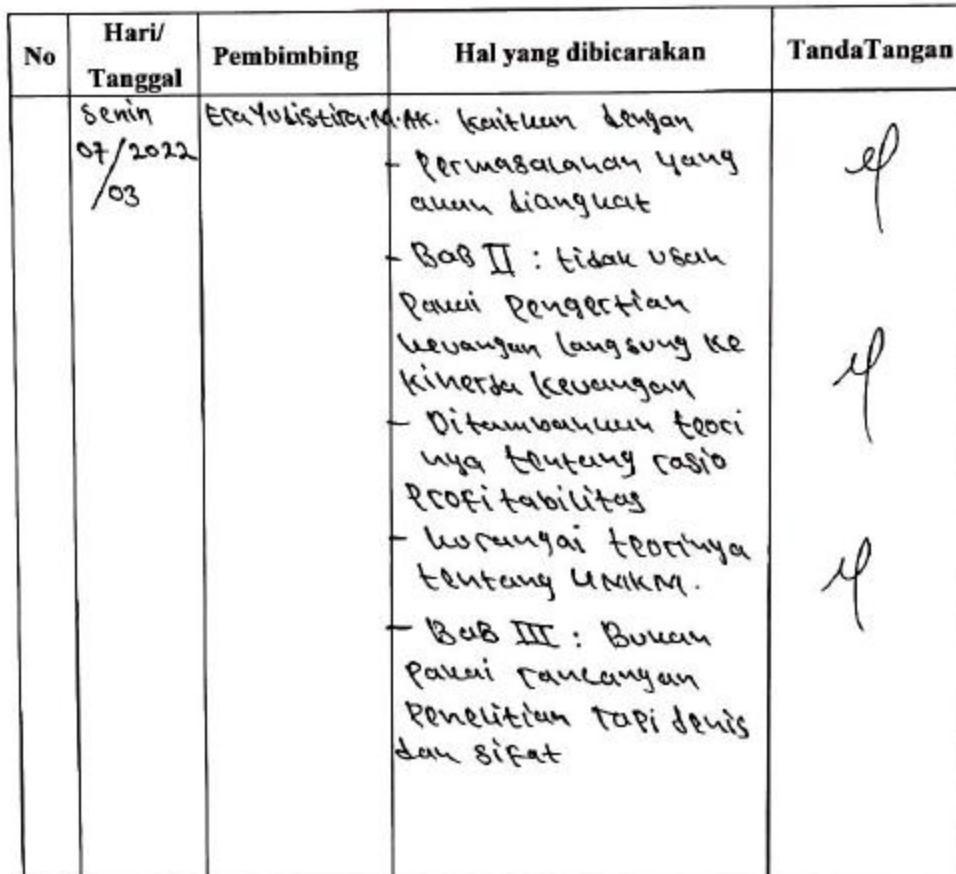 No Hari/ Tanggal Pembimbing Hal yang dibicarakan TandaTangan
Senin Era Yudistira.M.AK. kaitkan dengan
07/2022 - Permasalahan yang
/03 akan diangkat
- BAB II : tidak usah
Pakai Pengertian
keuangan langsung ke
kinerja keuangan
- Ditambahkan teori
nya tentang rasio
Profitabilitas
- kurangai teorinya
tentang UMKM.
- BAB III : Bukan
pakai rancangan
Penelitian tapi jenis
dan sifat